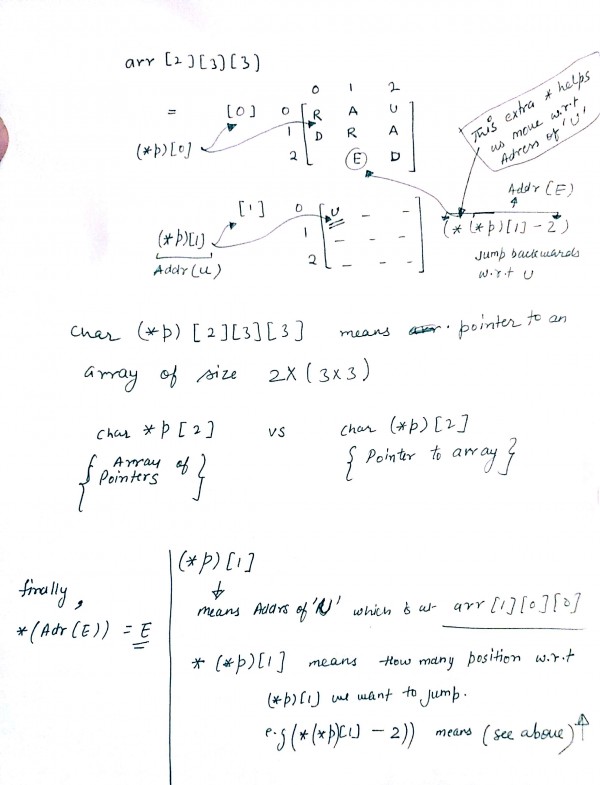 arr [2][3][3]
0 1 2
= [0] 0 R A U
(*p)[0] 1 D R A
2 E D
This extra * helps
us move w.r.t
Adress of 'U'
Addr (E)
[1] 0 U - -
(*(*p)[1] - 2)
(*p)[1] 1 - - -
Addr(u) 2 - - -
Jump backwards
w.r.t U
char (*p) [2][3][3] means pointer to an
array of size 2x(3x3)
char *p[2] vs char (*p)[2]
{ Array of Pointers } { Pointer to array }
(*p)[1]
means Addrs of 'U' which is at arr [1][0][0]
finally,
*(Adr(E)) = E
* (*p)[1] means How many position w.r.t
(*p)[1] we want to jump.
e.g (*(*p)[1] - 2)) means (see above) ↑